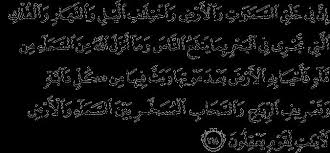 إِنَّ فِي خَلْقِ السَّمَاوَاتِ وَالْأَرْضِ وَاخْتِلَافِ اللَّيْلِ وَالنَّهَارِ وَالْفُلْكِ
الَّتِي تَجْرِي فِي الْبَحْرِ بِمَا يَنْفَعُ النَّاسَ وَمَا أَنْزَلَ اللَّهُ مِنَ السَّمَاءِ مِنْ
مَاءٍ فَأَحْيَا بِهِ الْأَرْضَ بَعْدَ مَوْتِهَا وَبَثَّ فِيهَا مِنْ كُلِّ دَابَّةٍ
وَتَصْرِيفِ الرِّيَاحِ وَالسَّحَابِ الْمُسَخَّرِ بَيْنَ السَّمَاءِ وَالْأَرْضِ
لَآيَاتٍ لِقَوْمٍ يَعْقِلُونَ ١٦٤